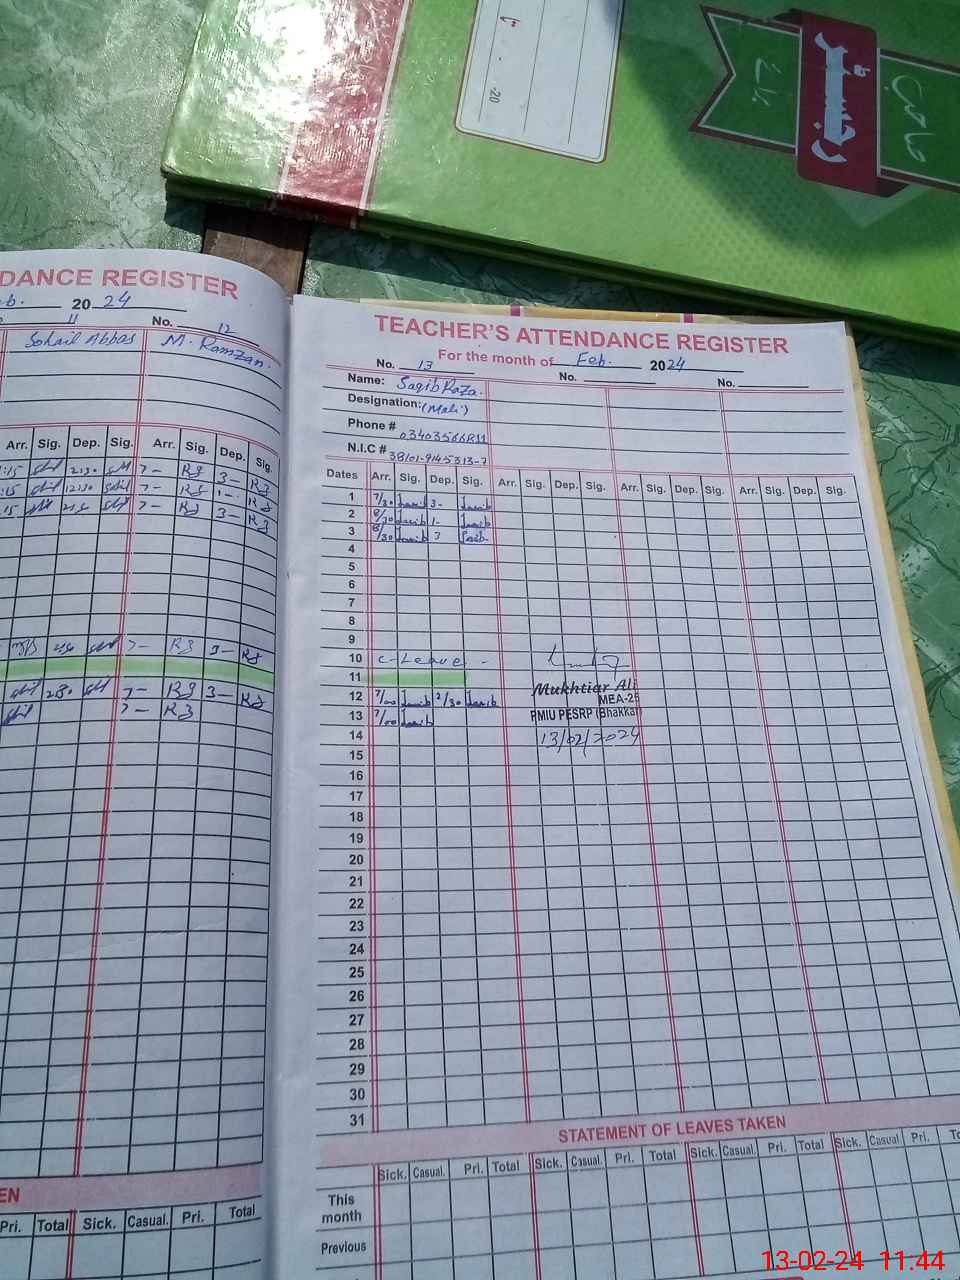 -20
رجسٹر
DANCE REGISTER
eb. 20 24
11 No. 12
Sohail Abbas M. Ramzan.
Arr. Sig. Dep. Sig. Arr. Sig. Dep. Sig.
:15 2130 7- RJ 3- RJ
:15 12130 7- RJ 1- RJ
15 7- RJ 3- RJ
7- RJ 3- RJ
7- RJ 3- RJ
7- RJ
EN
Pri. Total Sick. Casual. Pri. Total
TEACHER'S ATTENDANCE REGISTER
For the month of Feb. 2024
No. 13 No. No.
Name: Saqib Raza.
Designation: (Mali)
Phone #
N.I.C # 38101-9145313-7
Dates Arr. Sig. Dep. Sig. Arr. Sig. Dep. Sig. Arr. Sig. Dep. Sig. Arr. Sig. Dep. Sig.
1 7/30 Saqib 3- Saqib
2 8/30 Saqib 1- Saqib
3 8/30 Saqib 3 Saqib
4
5
6
7
8
9
10 C-Leave -
11
12 7/00 Saqib 2/30 Saqib
13 7/00 Saqib
Mukhtiar Ali
MEA-25
PMIU PESRP (Bhakkar)
13/02/2024
14
15
16
17
18
19
20
21
22
23
24
25
26
27
28
29
30
31
STATEMENT OF LEAVES TAKEN
Sick. Casual. Pri. Total Sick. Casual. Pri. Total Sick. Casual. Pri. Total Sick. Casual Pri. To
This
month
Previous
13-02-24 11.44